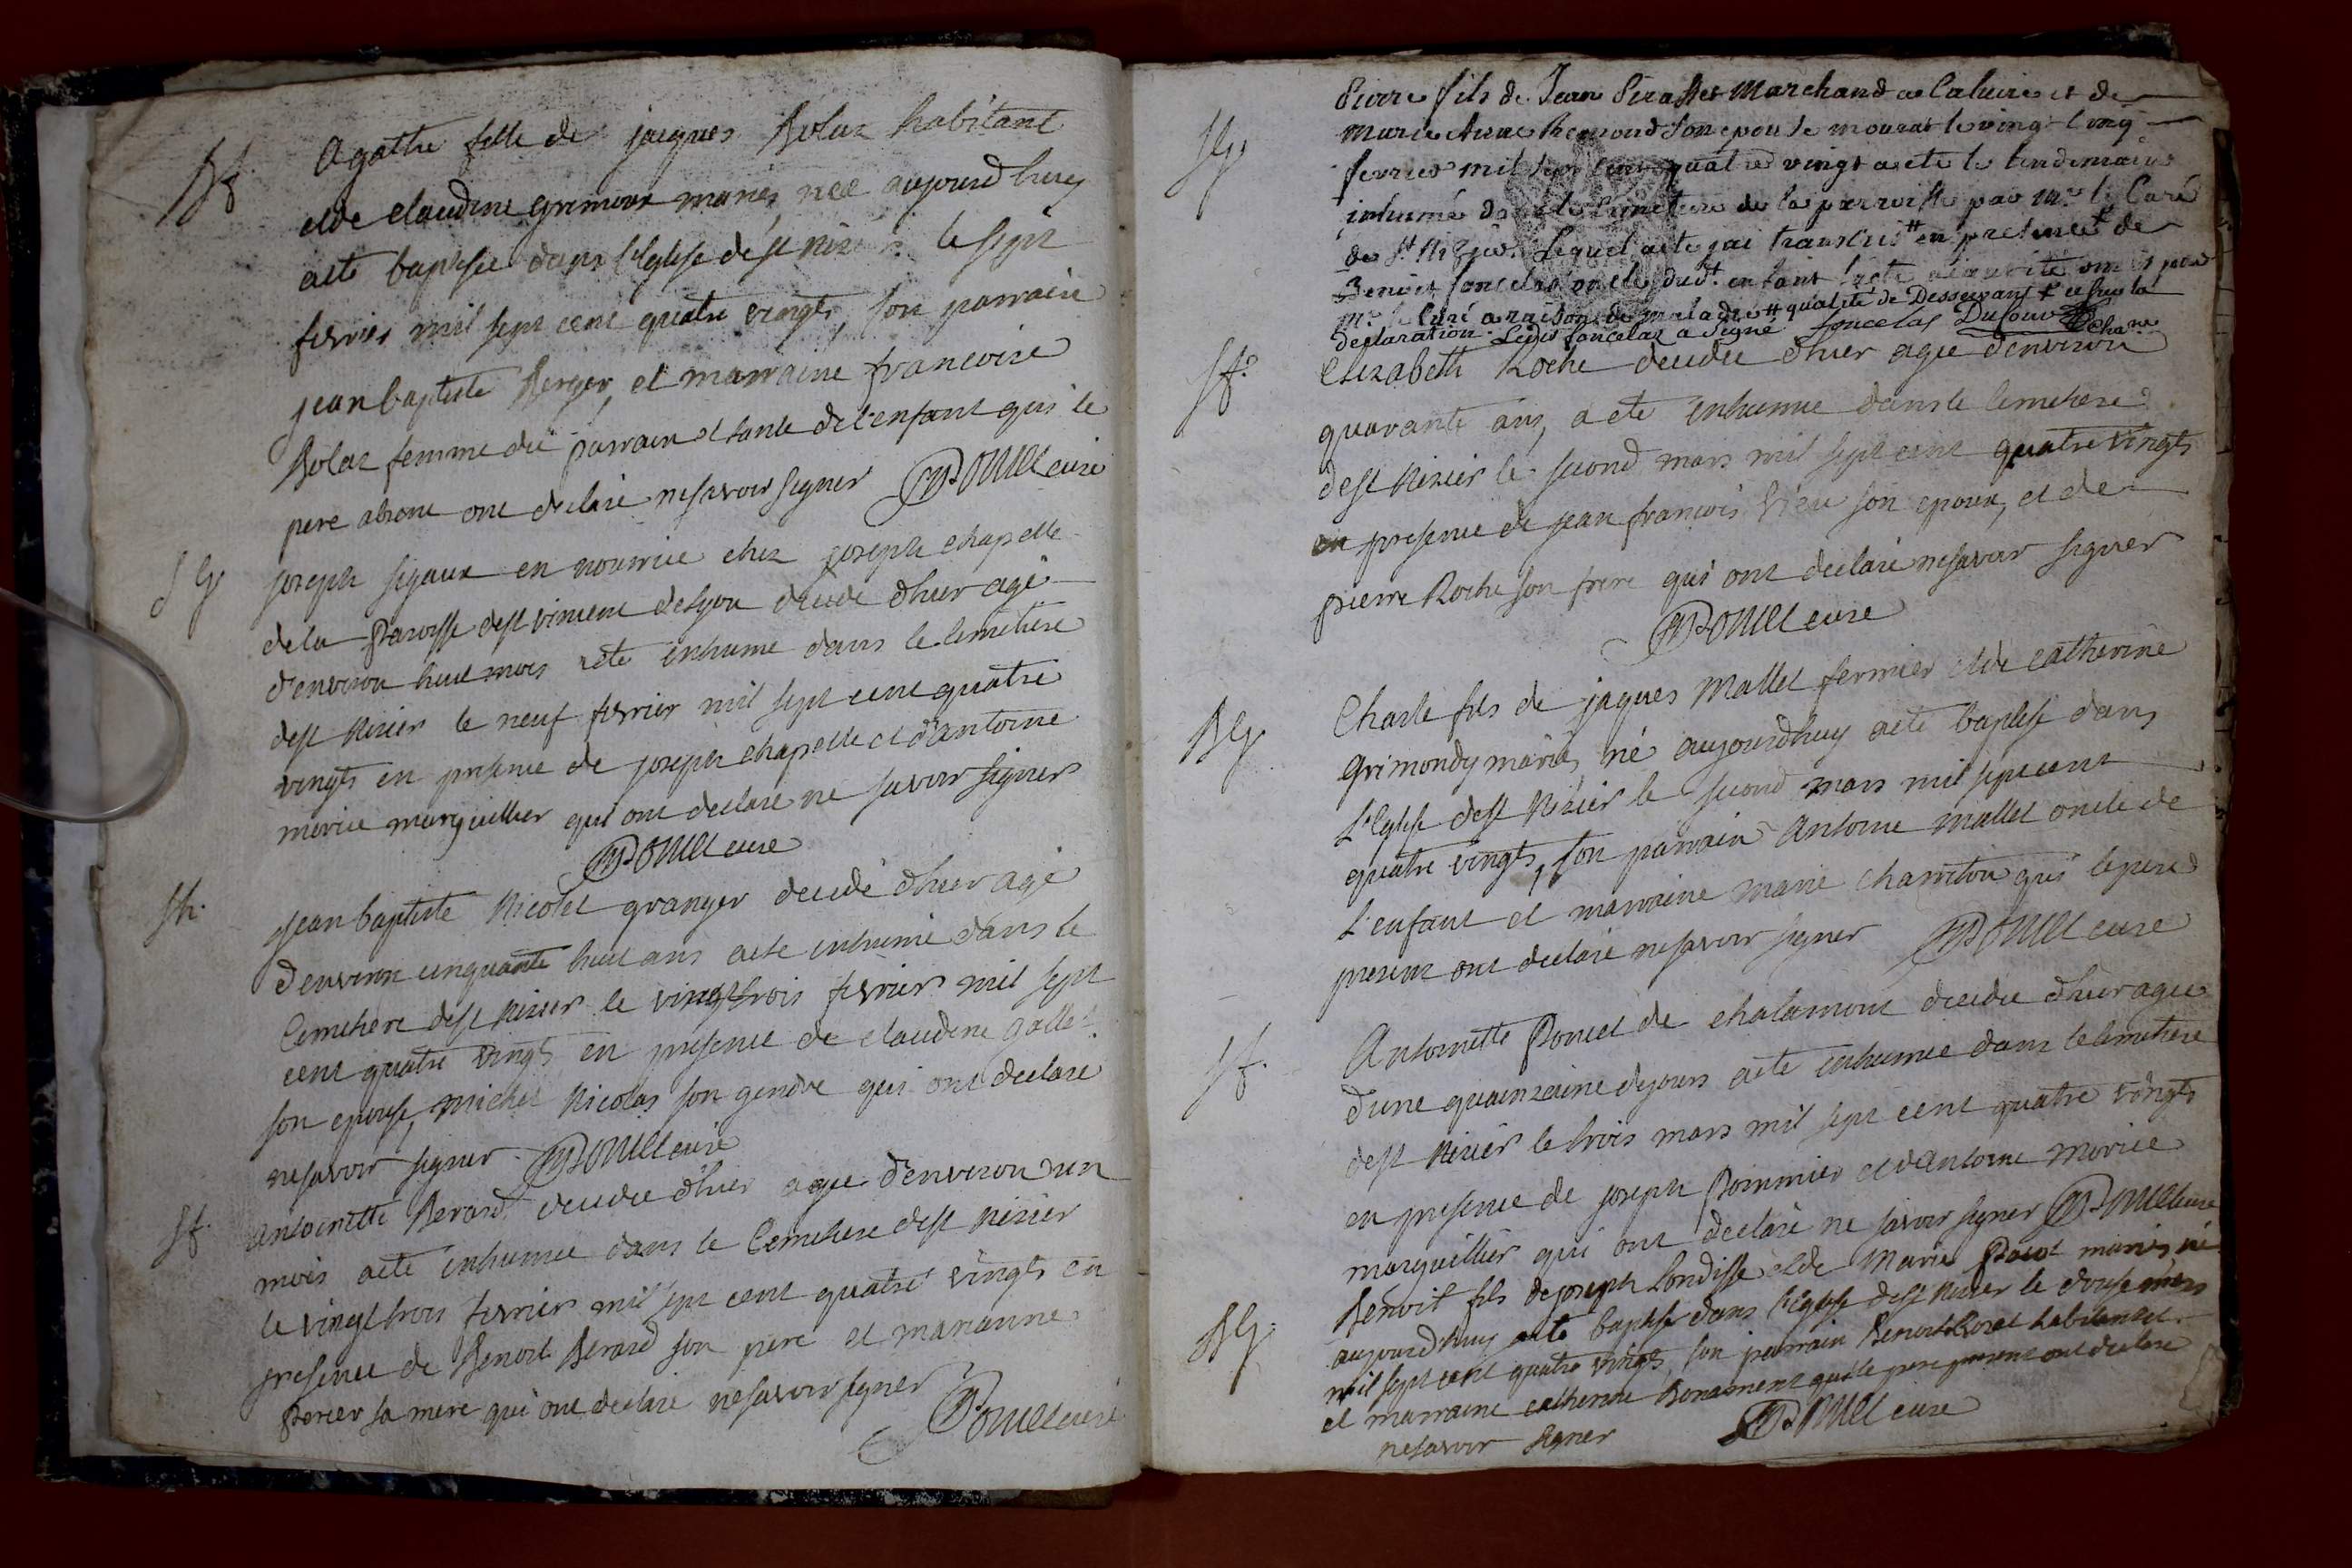 Bf.
Agathe fille de jacques Bolaz habitant
et de claudine grimoux mariés, née aujourd'huy
a eté baptisée dans l'Eglise de st nizier le sept
fevrier mil sept cent quatre vingts, son parrain
jean baptiste Berger, et marraine francoise
Bolaz femme du parrain et tante de l'enfant qui le
pere absent ont declaré ne savoir signer Poncet curé
SG
joseph sigaux en nourrice chez joseph chapelle
de la Paroisse de st vincent de lyon decedé d'hier agé
d'environ huit mois a eté inhumé dans le cemetiere
de st nizier le neuf fevrier mil sept cent quatre
vingts en presence de joseph chapelle et d'antoine
morice marguillier qui ont declaré ne savoir signer
Poncet curé
Sh.
jean baptiste Nicolet granger decedé d'hier agé
d'environ cinquante huit ans a eté inhumé dans le
Cemetiere de st nizier le vingt trois fevrier mil sept
cent quatre vingts en presence de claudine gallet
son epouse, michel Nicolas son gendre qui ont declaré
ne savoir signer. Poncet curé
Sf.
antoinette Berard decedée d'hier agée d'environ un
mois a eté inhumée dans le Cemetiere de st nizier
le vingt trois fevrier mil sept cent quatre vingts en
presence de Benoit Berard son pere et marianne
sa mere qui ont declaré ne savoir signer
Poncet curé
SG
Pierre fils de Jean Marchand a Caluire et de
Marie Anne Remond son epouse mourut le vingt cinq
fevrier mil sept cent quatre vingt a eté le lendemain
inhumé dans le Cimetiere de la parroisse par mr. le Curé
de St. Nizier. Lequel acte j'ai transcrit # en presence # de
Benoit foncelas oncle dud't enfant
mr. le curé a raison de maladie # qualité de Desservant # et sur la
declaration. Ledit foncelas a signé foncelas Dufour
Sf.
Elizabeth Roche decedée d'hier agée d'environ
quarante ans, a eté inhumée dans le Cemetiere
de st nizier le second mars mil sept cent quatre vingts
en presence de jean francois son epoux, et de
pierre Roche son frere qui ont declaré ne savoir signer
Poncet curé
BG
Charle fils de jaques Mallet fermier et de catherine
Grimondy mariés, né aujourdhuy a eté baptisé dans
L'Eglise de st Nizier le second mars mil sept cent
quatre vingts, son parrain Antoine mallet oncle de
L'enfant et marraine marie chareton qui le pere
present ont declaré ne savoir signer Poncet curé
Sf.
Antoinette Poncet de chalamont decedée d'hier agée
d'une quainzaine de jours a eté inhumée dans le cemetiere
de st Nizier le trois mars mil sept cent quatre vingts
en presence de joseph Pommier et d'antoine morice
marguillier qui ont declaré ne savoir signer Poncet curé
BG.
Benoit fils de joseph Londisse et de Marie mariés, né
aujourdhuy a eté baptisé dans l'Eglise de st Nizier le douze mars
mil sept cent quatre vingts, son parrain Benoit habitant
et marraine catherine Bonnement qui le pere present ont declaré
ne savoir signer Poncet curé